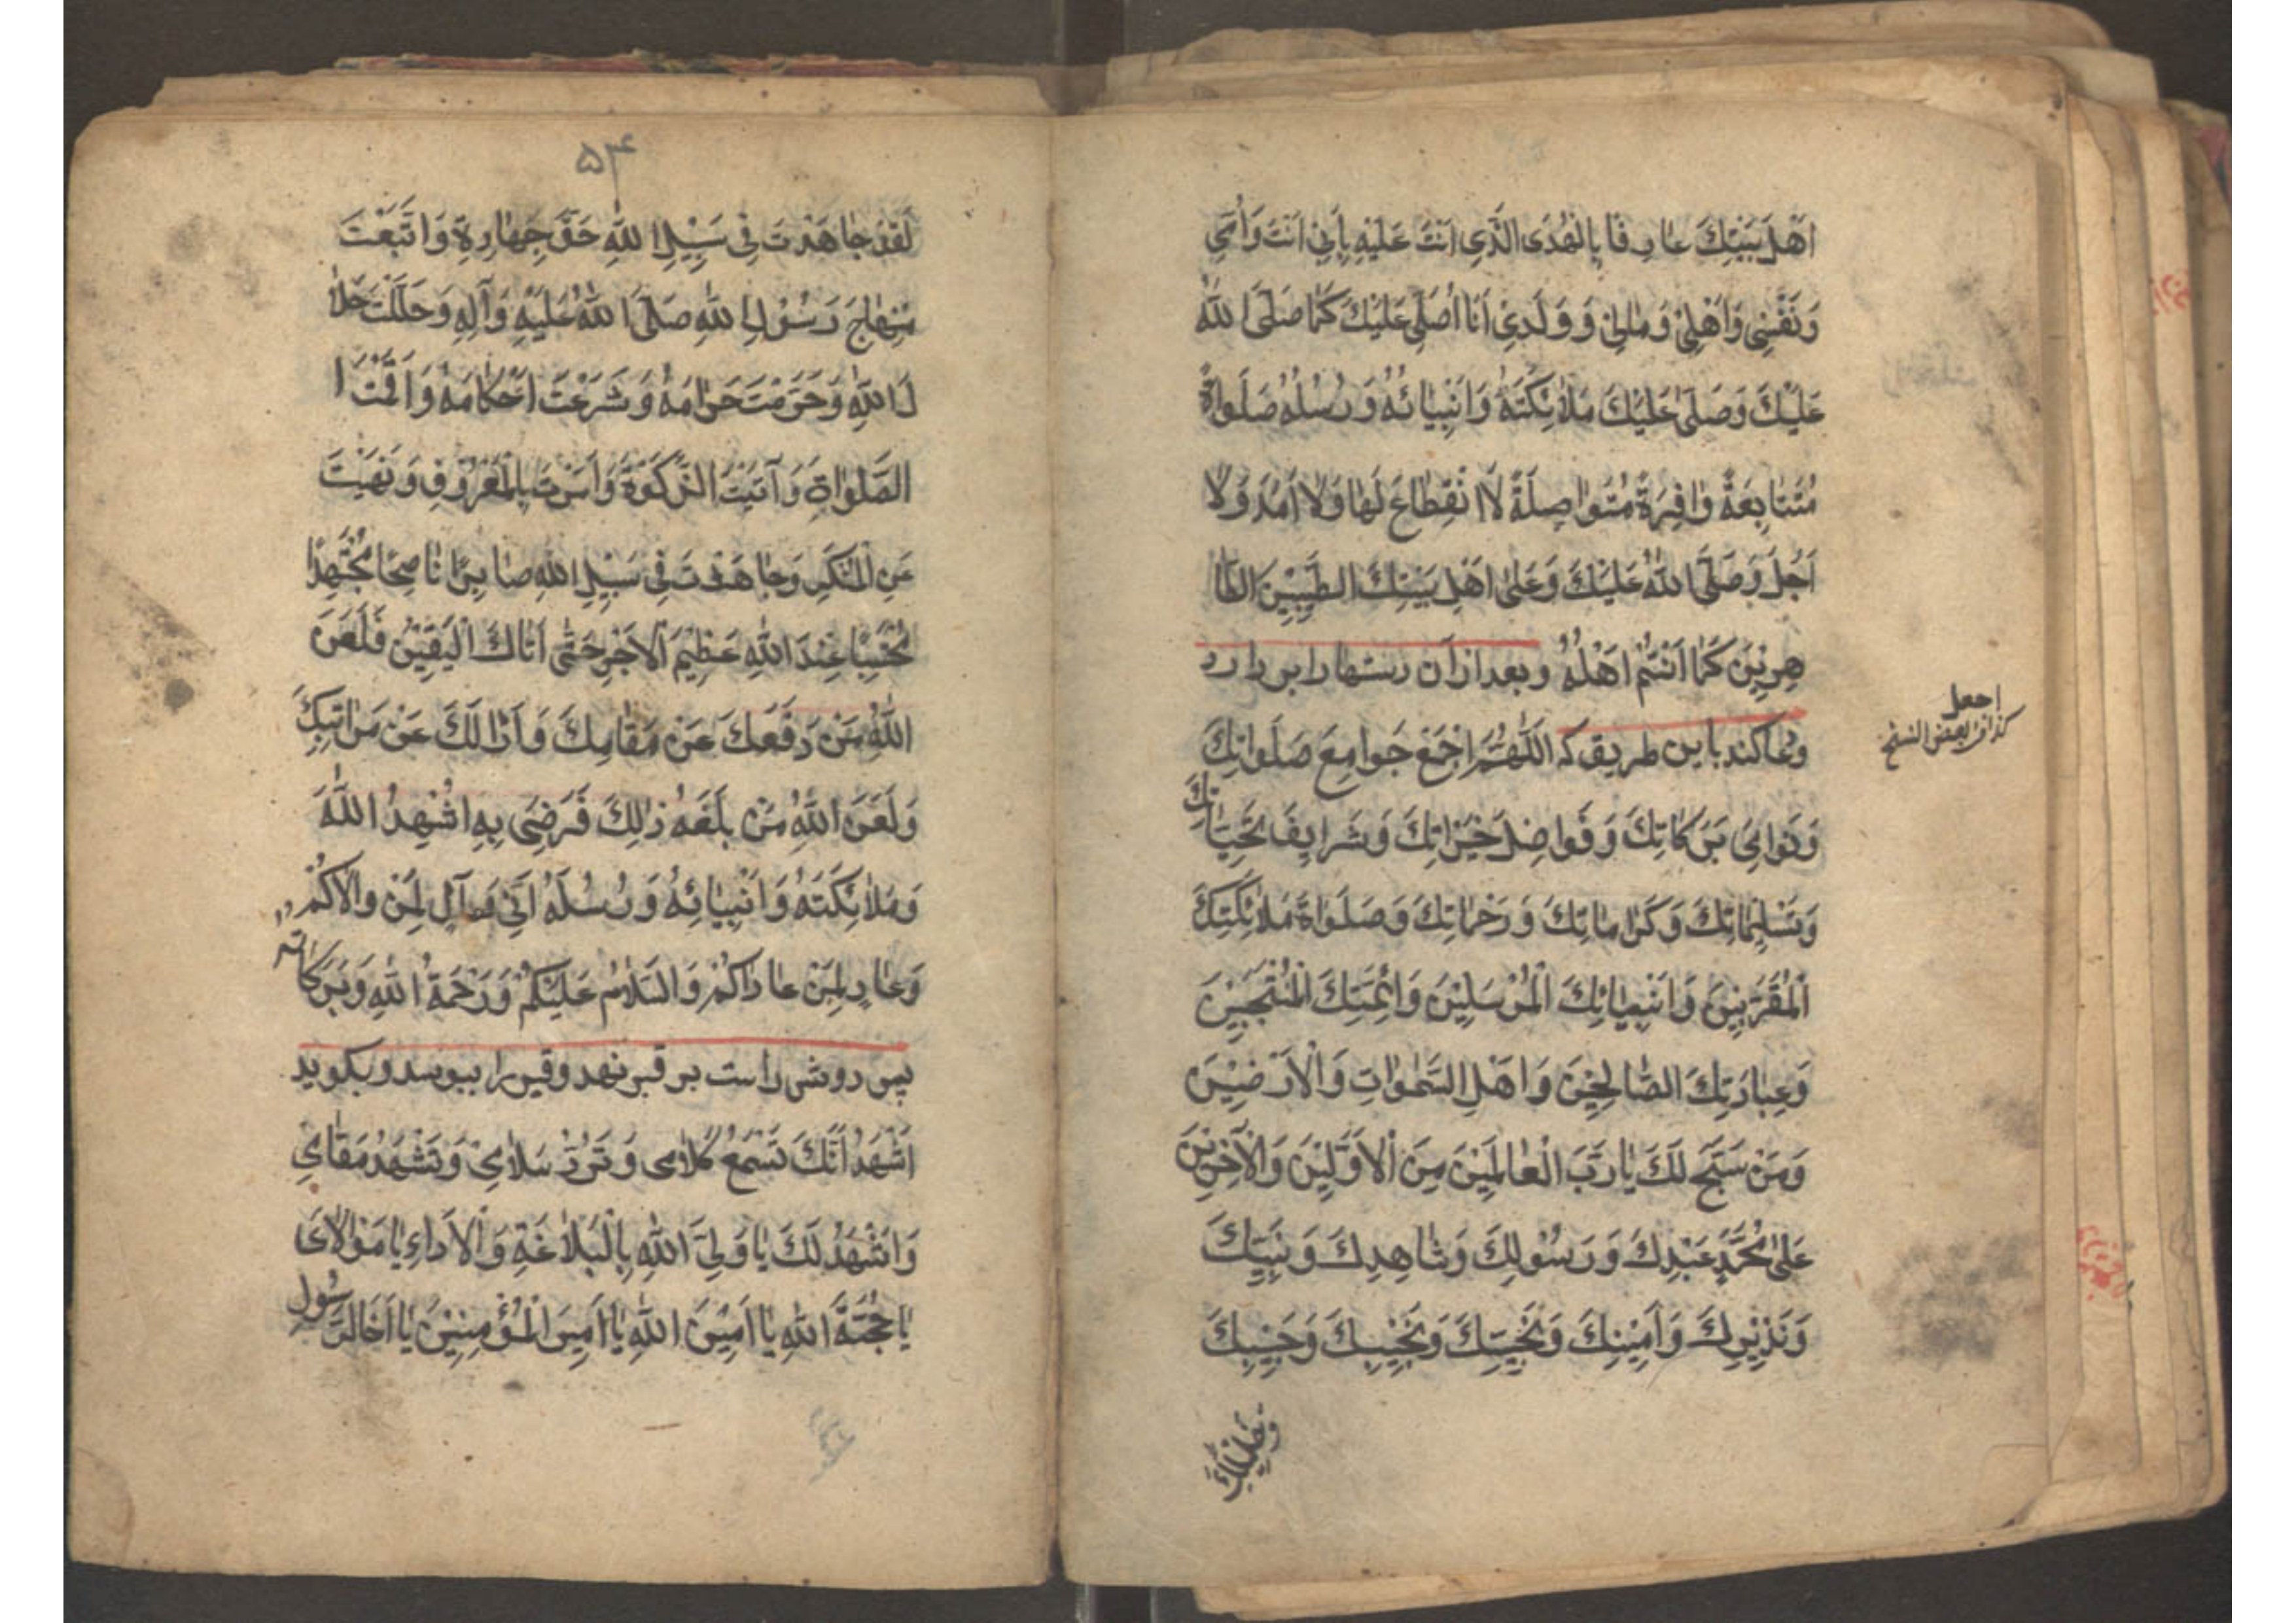 اَهْلِ بَيْتِكَ عارِفًا بِالْهُدَى الَّذي اَنْتَ عَلَيْهِ بِاَبي اَنْتَ وَاُمّي
وَنَفْسي وَاَهْلي وَمالي وَوَلَدي اَنَا اُصَلّي عَلَيْكَ كَما صَلَّى اللهُ
عَلَيْكَ وَصَلّى عَلَيْكَ مَلائِكَتُهُ وَاَنْبِيائُهُ وَرُسُلُهُ صَلَواةً
مُتَتابِعَةً وافِرَةً مُتَواصِلَةً لاَ انْقِطاعَ لَها وَلا اَمَدَ وَلا
اَجَلَ وَصَلَّى اللهُ عَلَيْكَ وَعَلى اَهْلِ بَيْتِكَ الطَّيِّبينَ الطّا
هِرينَ كَما اَنْتُمْ اَهْلُهُ وبعد از آن دستها را بر دارد
ودعا كند باين طريق كه اَللّهُمَّ اجْمَعْ جَوامِعَ صَلَواتِكَ
اجعل
كذا فى بعض النسخ
وَنَوامِيَ بَرَكاتِكَ وَفَواضِلَ خَيْراتِكَ وَشَرايِفَ تَحِيّاتِكَ
وَتَسْليماتِكَ وَكَراماتِكَ وَرَحَماتِكَ وَصَلَواةَ مَلائِكَتِكَ
الْمُقَرَّبينَ وَاَنْبِيائِكَ الْمُرْسَلينَ وَاَئِمَّتِكَ الْمُنْتَجَبينَ
وَعِبادِكَ الصّالِحينَ وَاَهْلِ السَّمواتِ وَالْاَرَضينَ
وَمَنْ سَبَّحَ لَكَ يا رَبَّ الْعالَمينَ مِنَ الْاَوَّلينَ وَالْآخِرينَ
عَلى مُحَمَّدٍ عَبْدِكَ وَرَسُولِكَ وَشاهِدِكَ وَنَبِيِّكَ
وَنَذيرِكَ وَاَمينِكَ وَنَجِيِّكَ وَنَجيبِكَ وَحَبيبِكَ
وَخَليلِكَ
۵۴
لَقَدْ جاهَدْتَ في سَبيلِ اللهِ حَقَّ جِهادِهِ وَاتَّبَعْتَ
مِنْهاجَ رَسُولِ اللهِ صَلَّى اللهُ عَلَيْهِ وَآلِهِ وَحَلَّلْتَ حَلا
لَ اللهِ وَحَرَّمْتَ حَرامَهُ وَشَرَعْتَ اَحْكامَهُ وَاَقَمْتَ ا
الصَّلواةِ وَآتَيْتَ الزَّكوةَ وَاَمَرْتَ بِالْمَعْرُوفِ وَنَهَيْتَ
عَنِ الْمُنْكَرِ وَجاهَدْتَ في سَبيلِ اللهِ صابِرًا ناصِحًا مُجْتَهِدًا
مُحْتَسِبًا عِنْدَ اللهِ عَظيمَ الْاَجْرِ حَتّى اَتاكَ الْيَقينُ فَلَعَنَ
اللهُ مَنْ دَفَعَكَ عَنْ مَقامِكَ وَاَزالَكَ عَنْ مَراتِبِكَ
وَلَعَنَ اللهُ مَنْ بَلَغَهُ ذلِكَ فَرَضِيَ بِهِ اُشْهِدُ اللهَ
وَمَلائِكَتَهُ وَاَنْبِيائَهُ وَرُسُلَهُ اَنّي مُوالٍ لِمَنْ والاكُمْ
وَعادٍ لِمَنْ عاداكُمْ وَالسَّلامُ عَلَيْكُمْ وَرَحْمَةُ اللهِ وَبَرَكاته
پس روش راست بر قبر نهد وقبر را ببوسد وبكويد
اَشْهَدُ اَنَّكَ تَسْمَعُ كَلامي وَتَرُدُّ سَلامي وَتَشْهَدُ مَقامي
وَاَشْهَدُ لَكَ يا وَلِيَّ اللهِ بِالْبَلاغَةِ وَالْاَداءِ يا مَوْلايَ
يا حُجَّةَ اللهِ يا اَمينَ اللهِ يا اَميرَ الْمُؤْمِنينَ يا اَخَا الرَّسُولِ